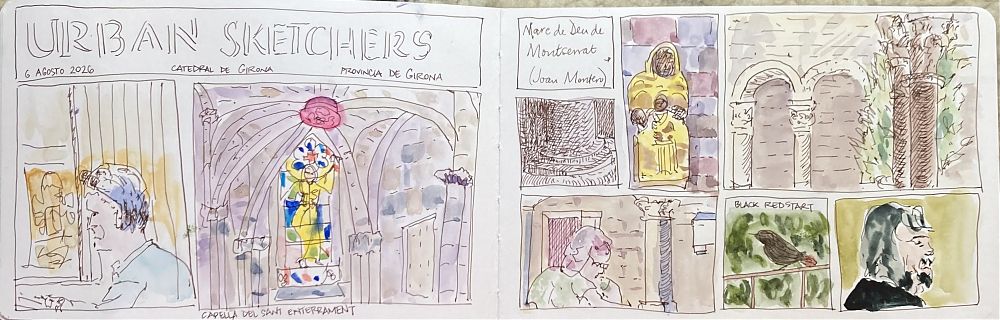 URBAN SKETCHERS
6 AGOSTO 2026 CATEDRAL DE GIRONA PROVINCIA DE GIRONA
CAPELLA DEL SANT ENTERRAMENT
Mare de Deu de
Montserrat
(Joan Montero)
BLACK REDSTART